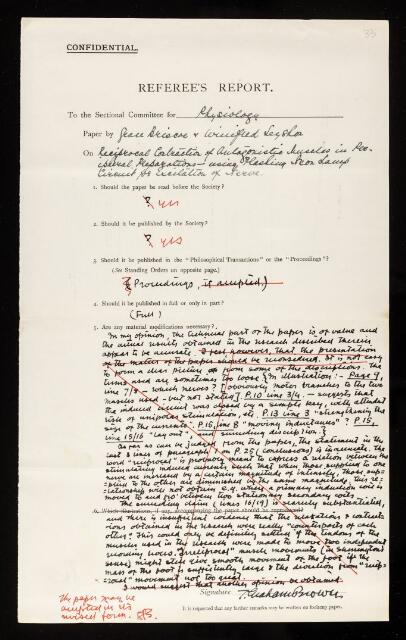 33
CONFIDENTIAL.
REFEREE'S REPORT.
To the Sectional Committee for Physiology
Paper by Jean Briscoe & Winifred Leyshon
On Reciprocal Contraction of Antagonistic Muscles in
Peripheral Preparations — using Flashing Neon Lamp
Circuit for excitation of Nerve.
1. Should the paper be read before the Society?
? yes
2. Should it be published by the Society?
? yes
3. Should it be published in the "Philosophical Transactions" or the "Proceedings"?
(See Standing Orders on opposite page.)
(Proceedings, if accepted.)
4. Should it be published in full or only in part?
(Full)
5. Are any material modifications necessary?
In my opinion, the technical part of the paper is of value and
the actual results obtained in the research described therein
appear to be accurate. I feel however, that the presentation
of the matter of the paper should be reconsidered. It is not easy
to form a clear picture from some of the descriptions. The
terms used are sometimes too loose (In illustration:- Page 9,
line 7/8 — which nerves? obviously motor branches to the two
muscles used — but not stated. P.10 line 3/4 — suggests that
the induced circuit was closed by a simple key, with attendant
risk of unipolar stimulation, etc. P.13 line 3 "strengthening the
of the currents" P.15, line 8 "moving inductances"? P.15,
line 15/16 "lay out" and succeeding description.)
As far as can be judged from the paper, the statement in the
last 3 lines of paragraph on P.25 (conclusions) is inaccurate. The
word "reciprocal" is probably meant to express a relation between the
stimulating induced currents such that when those supplied to one
nerve are increased by a certain magnitude of intensity, those supplied
to the other are diminished by the same magnitude. This
relationship will not obtain e.g. where a primary induction coil is
moved to and fro between two stationary secondary coils.
The concluding claim (lines 16/19) is scarcely substantiated,
6. Which illustrations, if any, accompanying the paper should be reproduced?
and there is insufficient evidence that the relaxations & contractions
obtained in the research were really "counterparts of each
other". This could only be definitely settled if the tendons of the
muscles used in the research were made to move two independent
recording levers. "Reciprocal" muscle movements (in Sherrington's
sense) might still give smooth movement of the foot if the
mass of the foot is sufficiently large & the deviation from "reciprocal"
movement not too great.
I would suggest that another opinion be obtained.
Signature T. Graham Brown
It is requested that any further remarks may be written on foolscap paper.
The paper may be
accepted in its
revised form.